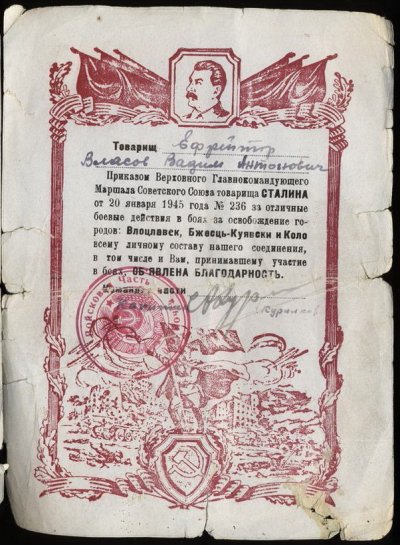 Товарищ ефрейтор
Власов Вадим Антонович
Приказом Верховного Главнокомандующего
Маршала Советского Союза товарища СТАЛИНА
от 20 января 1945 года № 236 за отличные
боевые действия в боях за освобождение го-
родов: Влоцлавек, Бжесць-Куявски и Коло
всему личному составу нашего соединения,
в том числе и Вам, принимавшему участие
в боях, ОБ'ЯВЛЕНА БЛАГОДАРНОСТЬ.
части